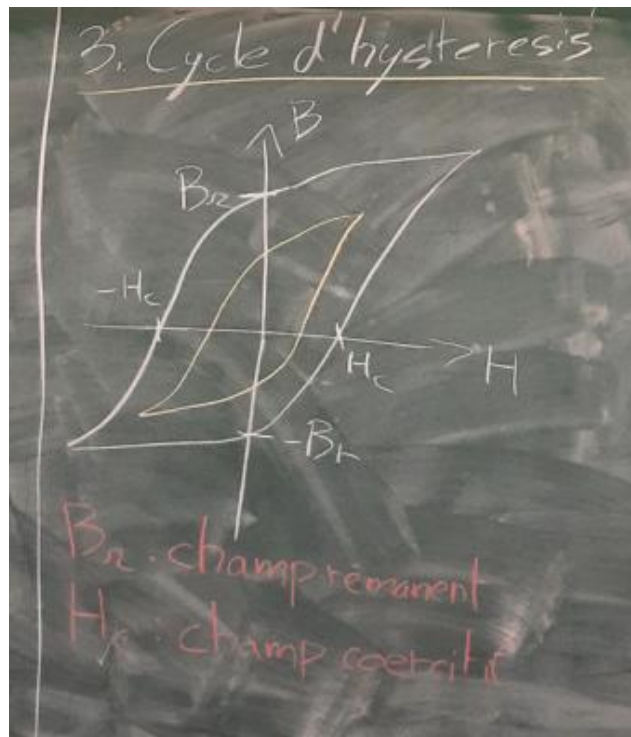 3. Cycle d'hysteresis
B
Br
-Hc
Hc
H
-Br
Br : champ remanent
Hc : champ coercitif